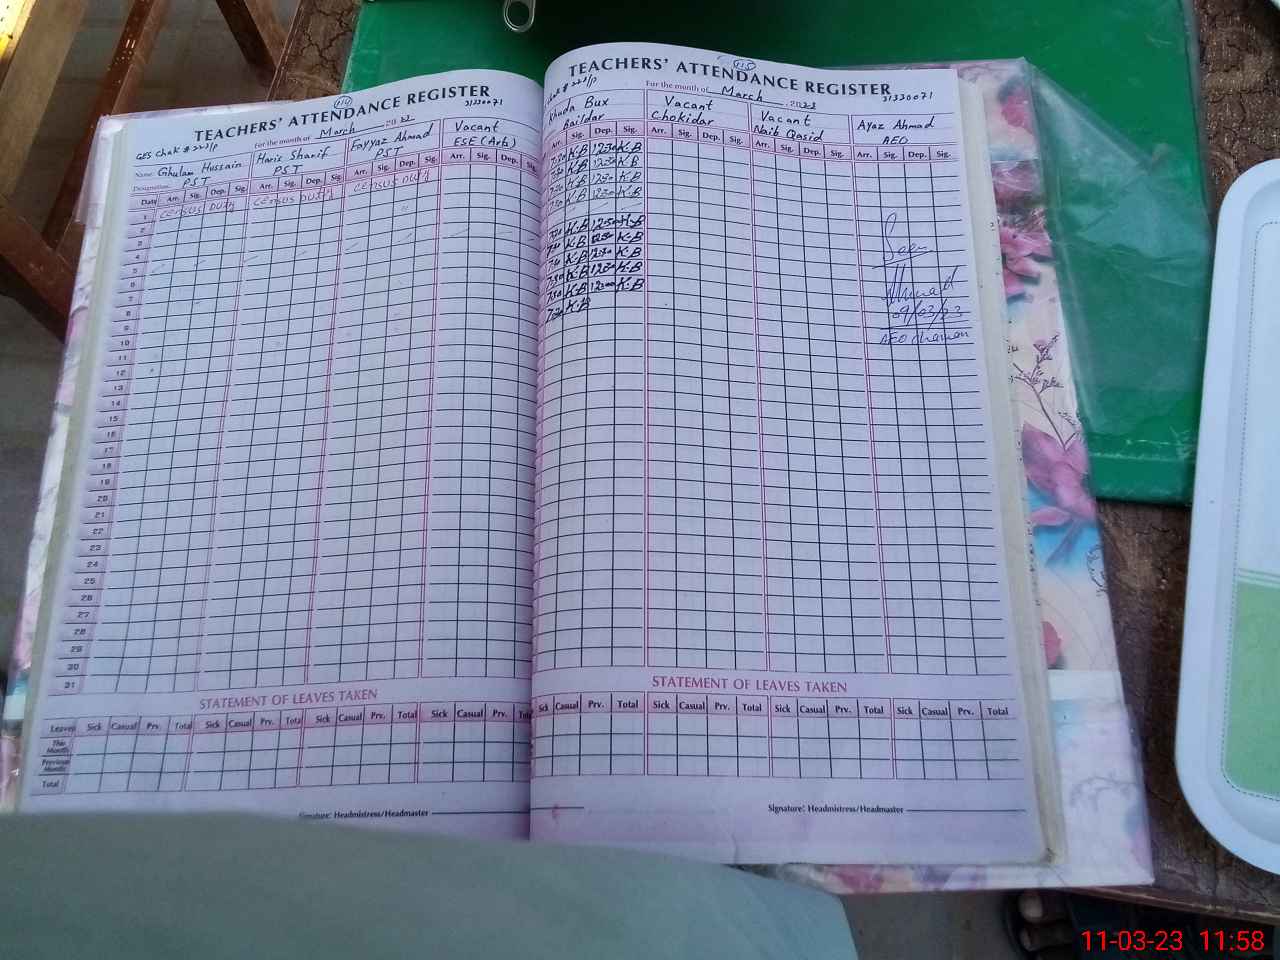 114
TEACHERS' ATTENDANCE REGISTER
31330071
For the month of March 2023
GES Chak # 223/P
Name: Ghulam Hussain
Haris Sharif
Fayyaz Ahmad
Vacant
Designation: PST
PST
PST
ESE (Arts)
Date Arr. Sig. Dep. Sig. Arr. Sig. Dep. Sig. Arr. Sig. Dep. Sig. Arr. Sig. Dep. Sig.
1 Census Duty Census Duty Census Duty
2
3
4
5
6
7
8
9
10
11
12
13
14
15
16
17
18
19
20
21
22
23
24
25
26
27
28
29
30
31
STATEMENT OF LEAVES TAKEN
Leaves Sick Casual Prv. Total Sick Casual Prv. Total Sick Casual Prv. Total Sick Casual Prv. Total
This Month
Previous Month
Total
Signature: Headmistress/Headmaster
115
TEACHERS' ATTENDANCE REGISTER
31330071
For the month of March 2023
Chak # 223/P
Khuda Bux
Vacant
Vacant
Ayaz Ahmad
Baildar
Chokidar
Naib Qasid
AEO
Arr. Sig. Dep. Sig. Arr. Sig. Dep. Sig. Arr. Sig. Dep. Sig. Arr. Sig. Dep. Sig.
7:30 K.B 12:30 K.B
7:30 K.B 12:30 K.B
7:30 K.B 12:30 K.B
7:30 K.B 12:30 K.B
7:30 K.B 12:30 K.B
7:30 K.B 12:30 K.B
7:30 K.B 12:30 K.B
7:30 K.B 12:30 K.B
7:30 K.B 12:30 K.B
7:30 K.B
09/03/23
AEO
STATEMENT OF LEAVES TAKEN
Casual Prv. Total Sick Casual Prv. Total Sick Casual Prv. Total Sick Casual Prv. Total
Signature: Headmistress/Headmaster
11-03-23 11:58